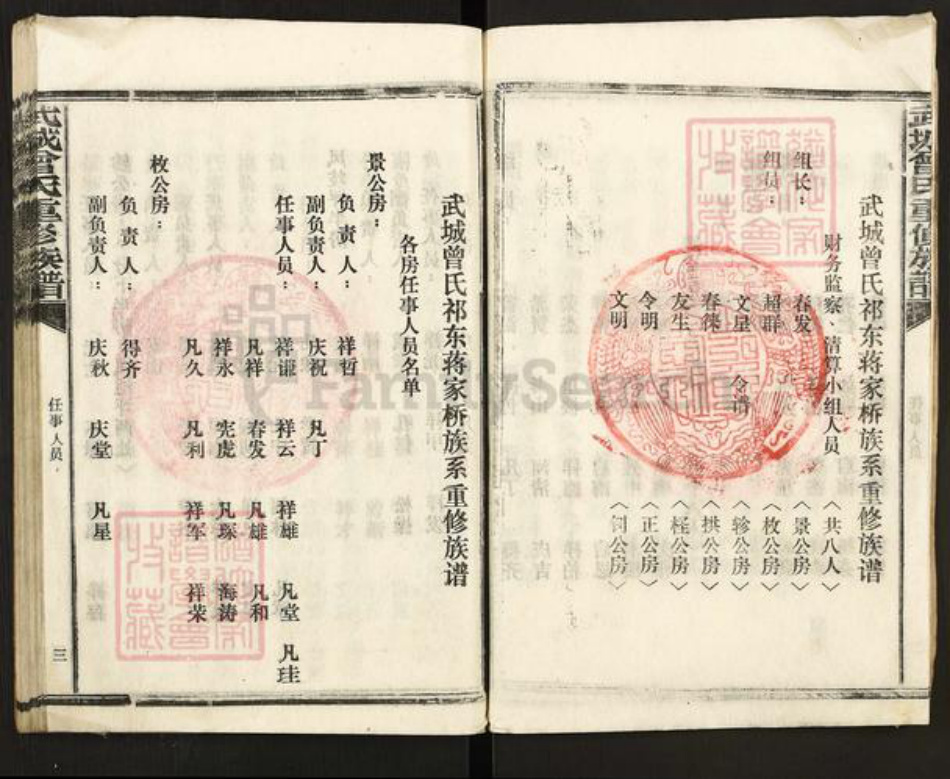 武城曾氏重修族譜
武城曾氏祁东蒋家桥族系重修族谱
财务监察、清算小组人员〈共八人〉
组长：春发〈景公房〉
组员：超群〈枚公房〉
文星 令谱〈轸公房〉
春徕〈拱公房〉
友生
令明〈正公房〉
文明
武城曾氏祁东蒋家桥族系重修族谱
各房任事人员名单
景公房：
负责人：祥哲
副负责人：庆祝 凡丁
任事人员：祥谁 祥云 祥雄 凡堂 凡珪
凡祥 春发 凡雄 凡和
祥永 宪虎 凡琛 海涛
凡久 凡利 祥军 祥荣
枚公房：
负责人：得齐
副负责人：庆秋 庆堂 凡星
武城曾氏重修族譜
任事人员
三
FamilySearch